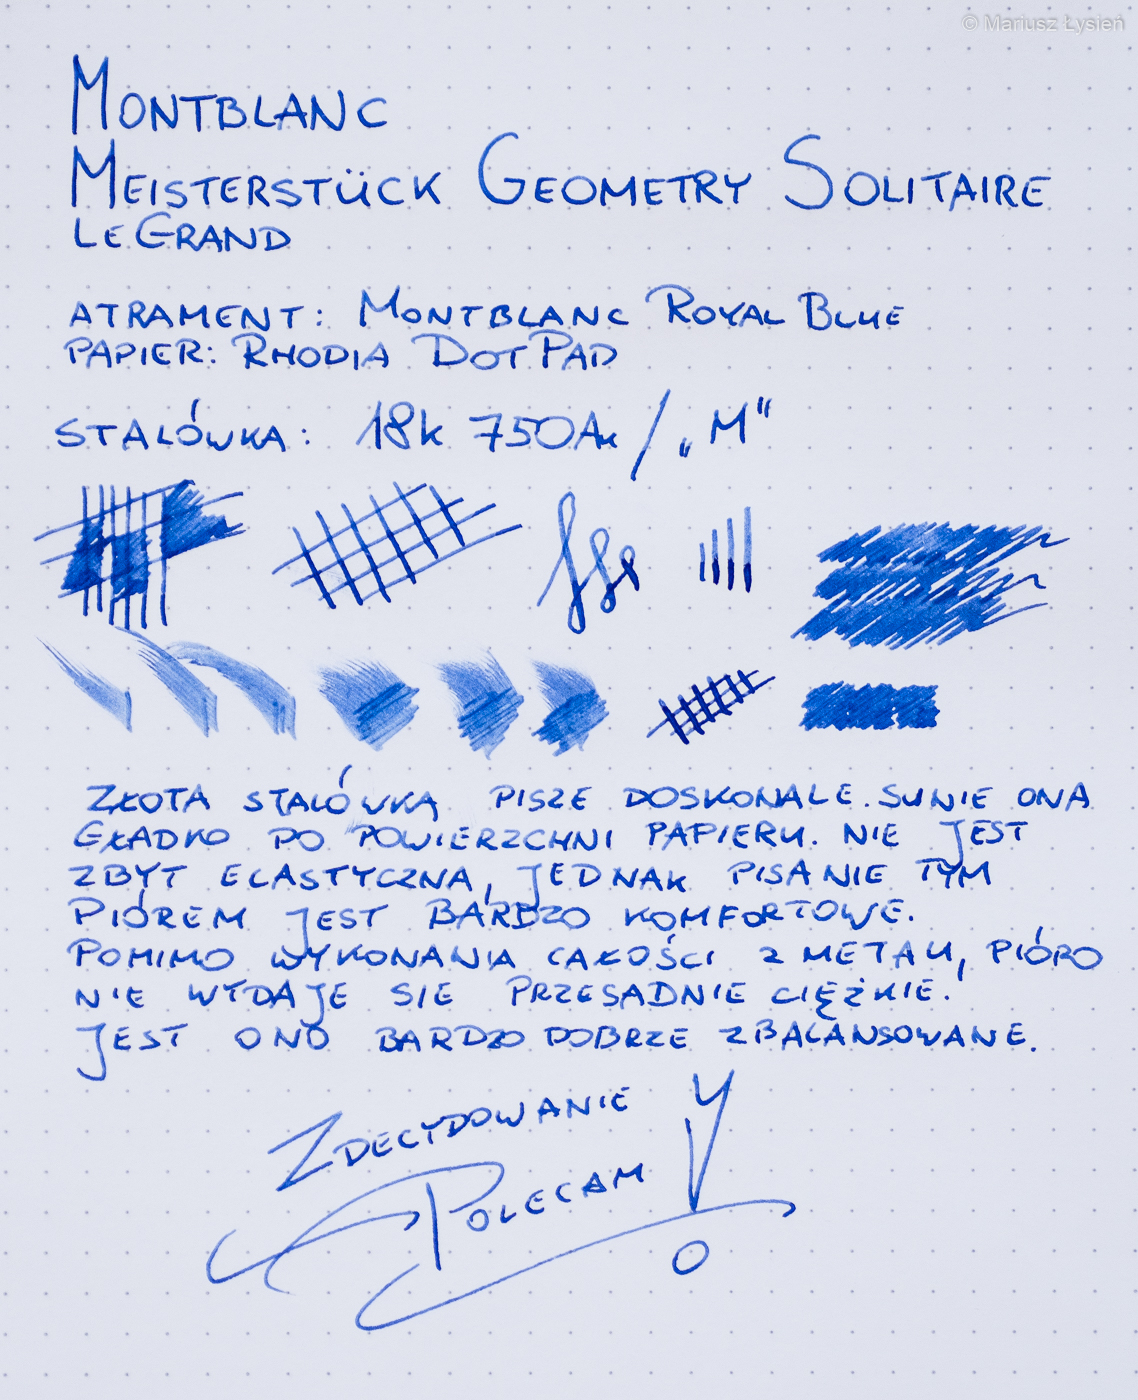 © Mariusz Łysień
MONTBLANC
MEISTERSTÜCK GEOMETRY SOLITAIRE
LEGRAND
ATRAMENT: MONTBLANC ROYAL BLUE
PAPIER: RHODIA DOTPAD
STALÓWKA: 18K 750Au / „M"
ZŁOTA STALÓWKA PISZE DOSKONALE. SUNIE ONA
GŁADKO PO POWIERZCHNI PAPIERU. NIE JEST
ZBYT ELASTYCZNA, JEDNAK PISANIE TYM
PIÓREM JEST BARDZO KOMFORTOWE.
POMIMO WYKONANIA CAŁOŚCI Z METALU, PIÓRO
NIE WYDAJE SIE PRZESADNIE CIĘŻKIE.
JEST ONO BARDZO DOBRZE ZBALANSOWANE.
ZDECYDOWANIE
POLECAM!